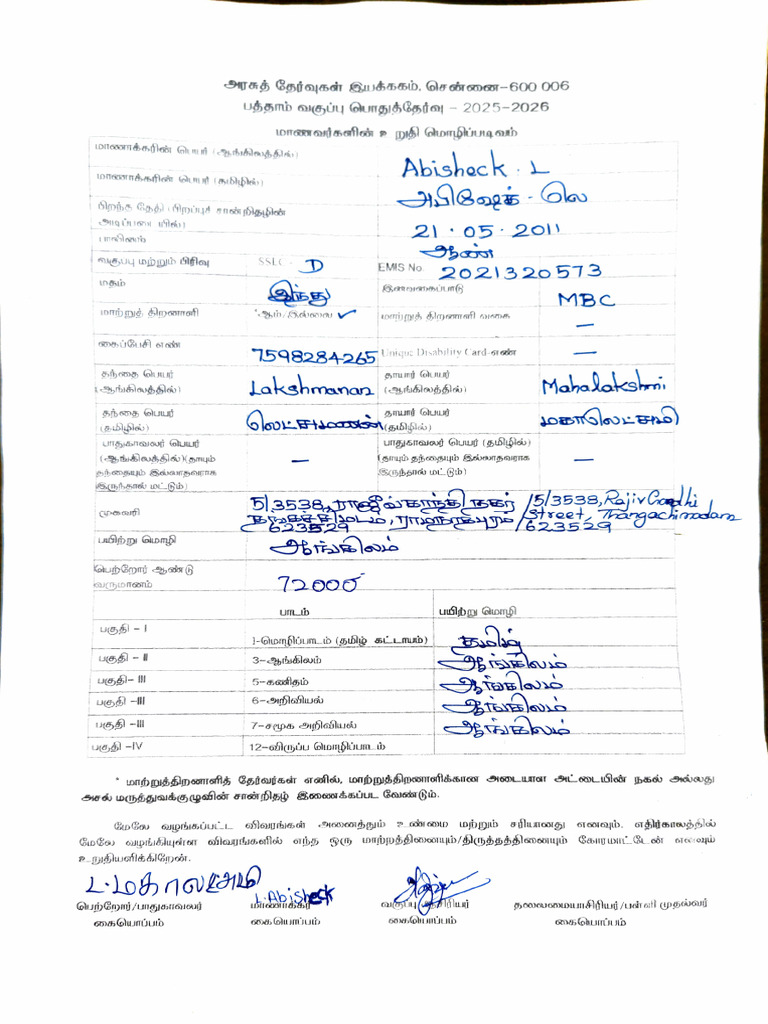 அரசுத் தேர்வுகள் இயக்ககம், சென்னை-600 006
பத்தாம் வகுப்பு பொதுத்தேர்வு - 2025-2026
மாணவர்களின் உறுதி மொழிப்படிவம்
மாணாக்கரின் பெயர் (ஆங்கிலத்தில்) Abisheck . L
மாணாக்கரின் பெயர் (தமிழில்) அபிஷேக் . லெ
பிறந்த தேதி (பிறப்புச் சான்றிதழின் அடிப்படையில்) 21.05.2011
பாலினம் ஆண்
வகுப்பு மற்றும் பிரிவு SSLC - D EMIS No 2021320573
மதம் இந்து இனவகைப்பாடு MBC
மாற்றுத் திறனாளி *ஆம்/இல்லை ✓ மாற்றுத் திறனாளி வகை —
கைப்பேசி எண் 7598284265 Unique Disability Card-எண் —
தந்தை பெயர் (ஆங்கிலத்தில்) Lakshmanan தாயார் பெயர் (ஆங்கிலத்தில்) Mahalakshmi
தந்தை பெயர் (தமிழில்) லெட்சுமணன் தாயார் பெயர் (தமிழில்) மகாலெட்சுமி
பாதுகாவலர் பெயர் (ஆங்கிலத்தில்)(தாயும் தந்தையும் இல்லாதவராக இருந்தால் மட்டும்) — பாதுகாவலர் பெயர் (தமிழில்) (தாயும் தந்தையும் இல்லாதவராக இருந்தால் மட்டும்) —
முகவரி 5/3538, ராஜீவ்காந்தி நகர் / 5/3538, Rajiv Gandhi
தங்கச்சிமடம், ராமநாதபுரம் / Street, Thangachimadam
623529 / 623529
பயிற்று மொழி ஆங்கிலம்
பெற்றோர் ஆண்டு வருமானம் 72000
பாடம் பயிற்று மொழி
பகுதி - I 1-மொழிப்பாடம் (தமிழ் கட்டாயம்) தமிழ்
பகுதி - II 3-ஆங்கிலம் ஆங்கிலம்
பகுதி- III 5-கணிதம் ஆங்கிலம்
பகுதி -III 6-அறிவியல் ஆங்கிலம்
பகுதி -III 7-சமூக அறிவியல் ஆங்கிலம்
பகுதி -IV 12-விருப்ப மொழிப்பாடம்
* மாற்றுத்திறனாளித் தேர்வர்கள் எனில், மாற்றுத்திறனாளிக்கான அடையாள அட்டையின் நகல் அல்லது
அசல் மருத்துவக்குழுவின் சான்றிதழ் இணைக்கப்பட வேண்டும்.
மேலே வழங்கப்பட்ட விவரங்கள் அனைத்தும் உண்மை மற்றும் சரியானது எனவும், எதிர்காலத்தில்
மேலே வழங்கியுள்ள விவரங்களில் எந்த ஒரு மாற்றத்தினையும்/திருத்தத்தினையும் கோரமாட்டேன் எனவும்
உறுதியளிக்கிறேன்.
ல.மகாலட்சுமி L.Abisheck
பெற்றோர்/பாதுகாவலர் மாணாக்கர் வகுப்பு ஆசிரியர் தலைமையாசிரியர்/பள்ளி முதல்வர்
கையொப்பம் கையொப்பம் கையொப்பம் கையொப்பம்